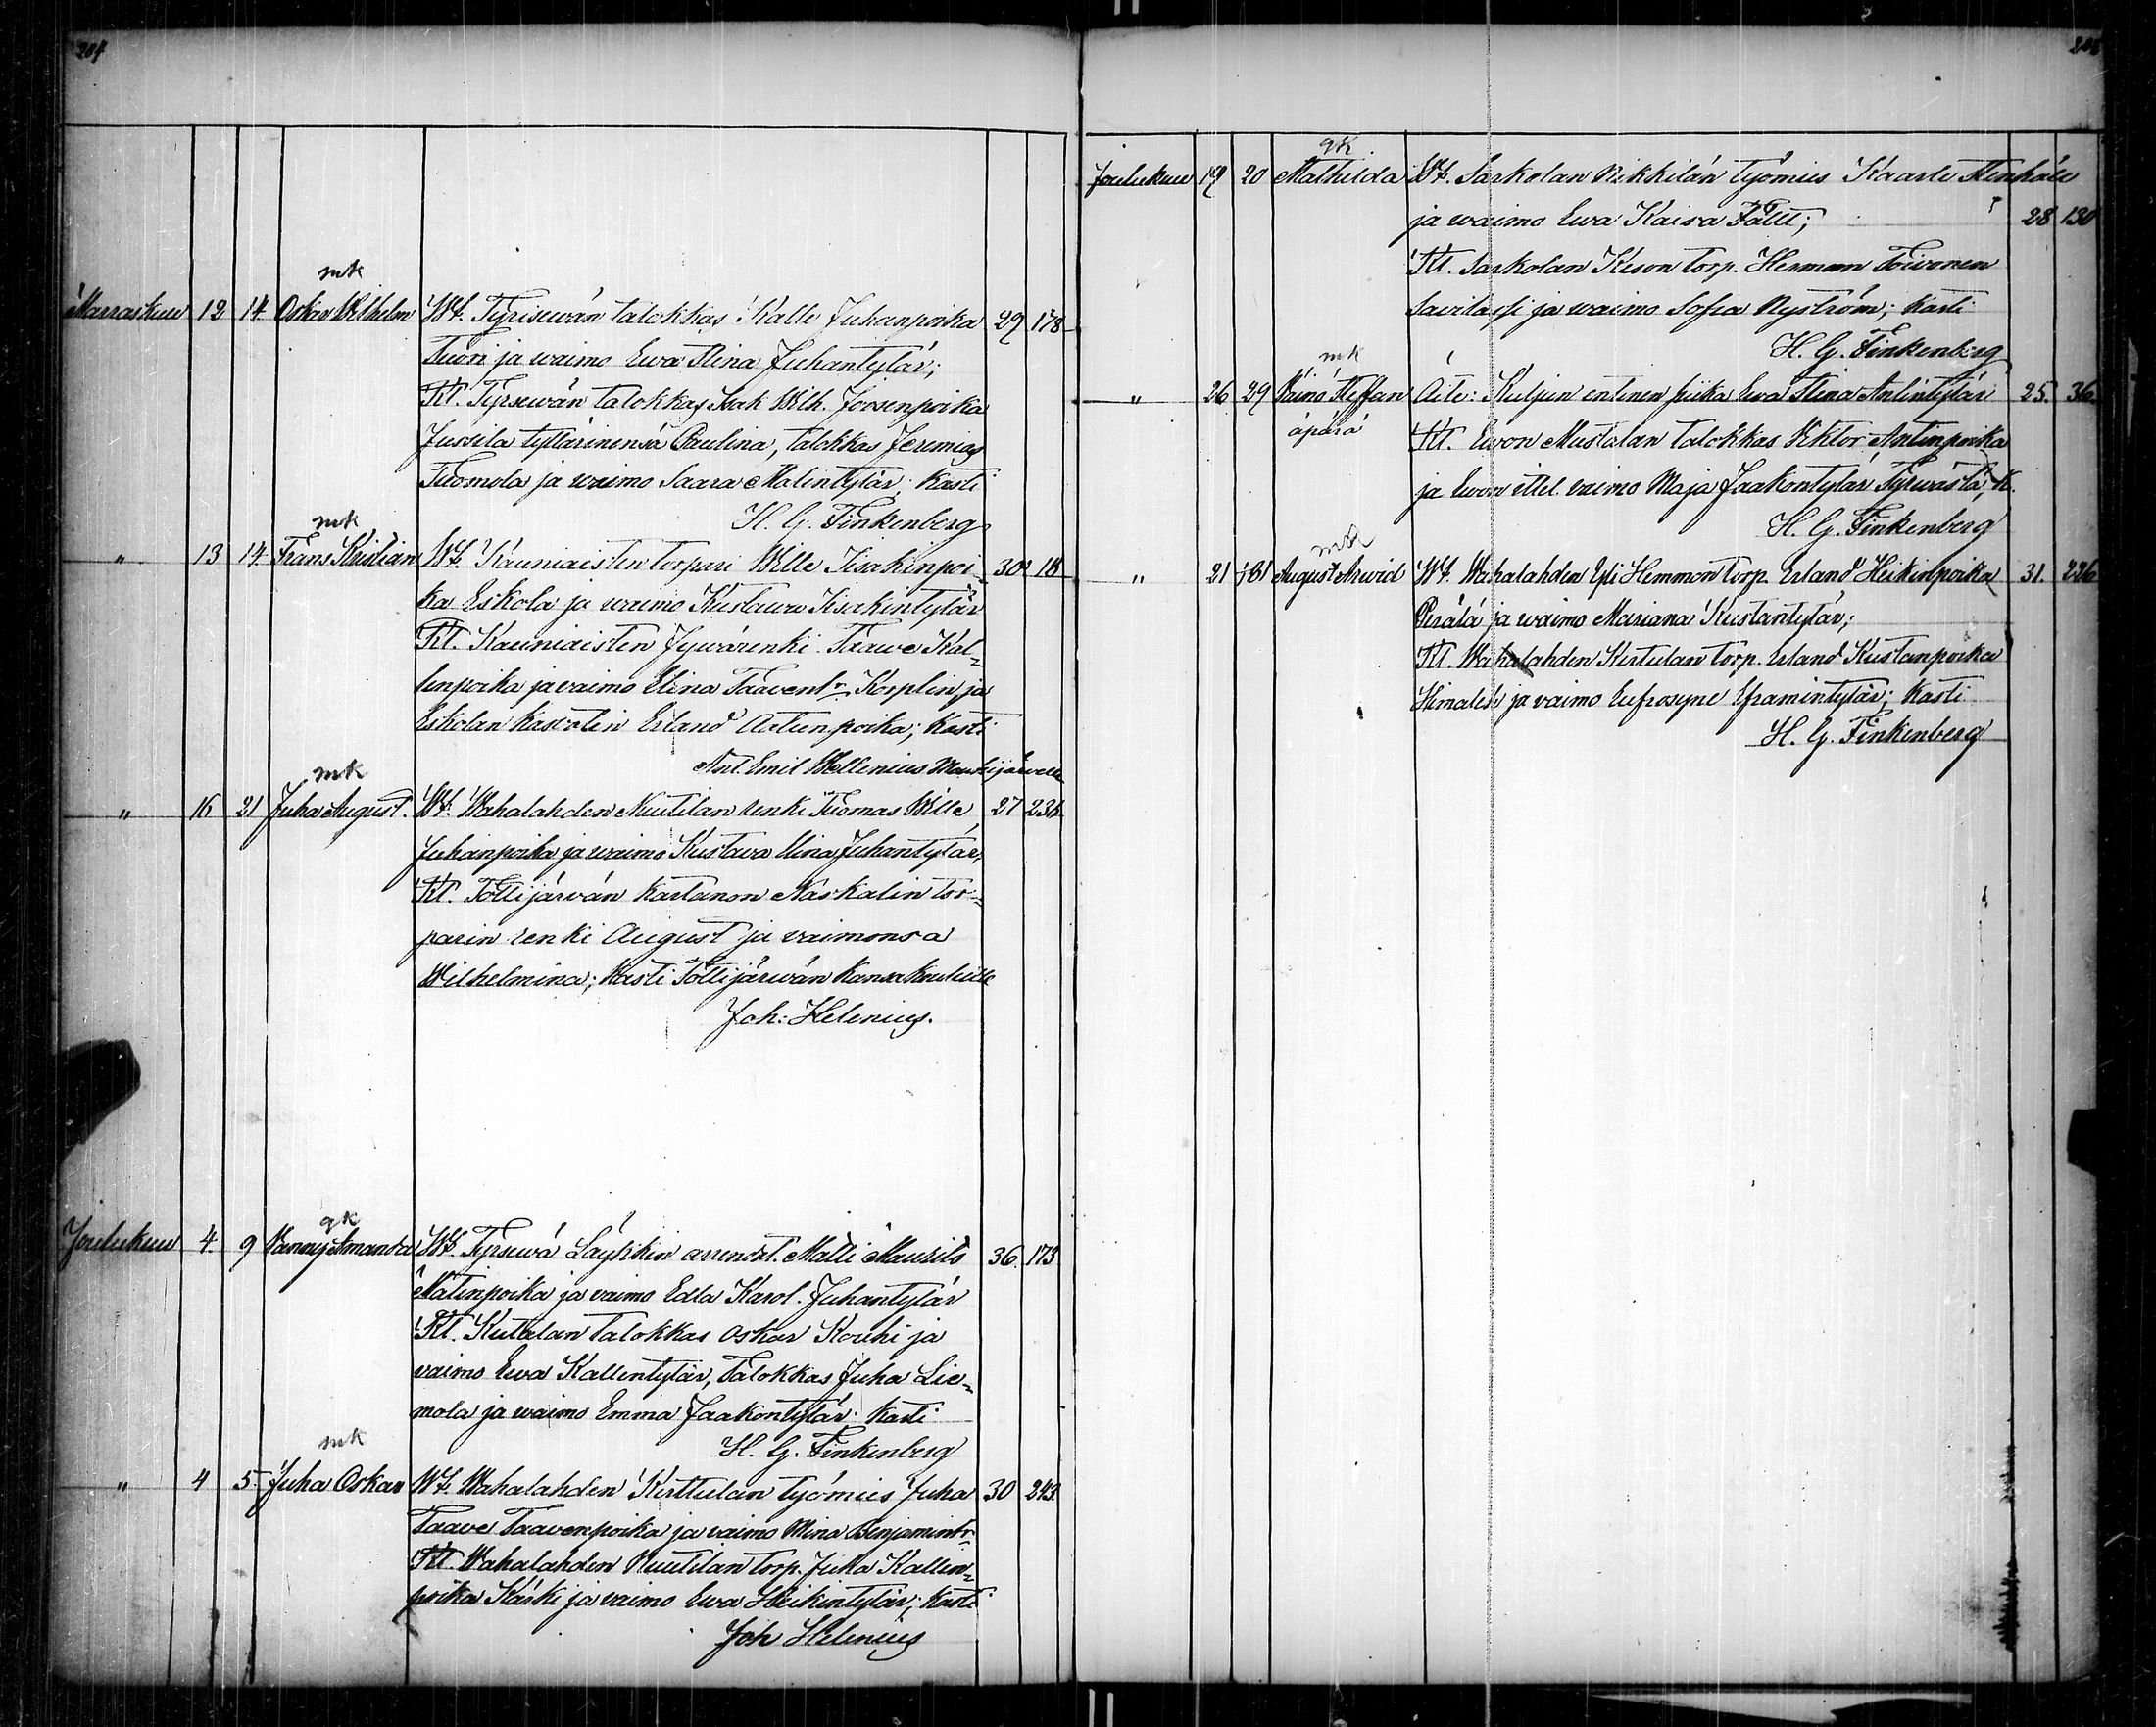 204
mk
Marraskuu 12 14. Oskar Wilhelm Wt. Tyrisewän talokkas Kalle Juhanpoika 29 178
Tuori ja waimo Ewa Stina Juhantytär;
Kt. Tyrsewän talokkas Isak Wilh. Joosenpoika
Jussila tyttärinensä Paulina, talokkas Jeremias
Tuomola ja waimo Saara Matintytär; Kasti
H. G. Finkenberg
mk
" 13 14. Frans Kristian Wt. Kauniaisten torpari Wille Iisakinpoi-
30 18
ka Eskola ja waimo Kustawa Iisakintytär
Kt. Kauniaisten Jywärenki Taawe Kal-
lenpoika ja vaimo Elina Taavent:r Korplin ja
Eskolan kasvatin Erland Aatunpoika; Kasti
Ant. Emil Wellenius Mouhijärvellä
mk
" 16 21 Juha August. Wt. Wahalahden Nuutilan renki Tuomas Wille 27 236
Juhanpoika ja waimo Kustawa Stina Juhantytär,
Kt. Tottijärvän Kartanon Naskalin tor-
parin renki August ja vaimonsa
Wilhelmina; Kasti Tottijärwän Kansakoululla
Joh: Helenius.
qk
Joulukuu 4. 9 Vanny Amanda Wt. Tyrsewä Läykkin arrendat. Matti Maurits 36. 173
Matinpoika ja vaimo Edla Karol. Juhantytär
Kt. Kutalan talokkas Oskar Kouhi ja
vaimo Ewa Kallentytär, Talokkas Juha Lie-
mola ja waimo Emma Jaakontytär. Kasti
H. G. Finkenberg
mk
" 4 5. Juha Oskar Wt. Wahalahden Kerttulan työmies Juha 30 243.
Taawe Taavenpoika ja vaimo Miina Benjamintr.
Kt. Wahalahden Nuutilan torp. Juha Kallen-
poika Kärki ja vaimo Ewa Heikintytär; Kasti
Joh Helenius
qk.
Joulukuu 19 20 Mathilda Wt. Sarkolan Nikkilän työmies Kaarle Stenhäll
ja waimo Ewa Kaisa Fält; 28 130
Kt. Sarkolan Keson torp. Herman Toivonen
Savilaksi ja waimo Sofia Nyström; Kasti
H. G. Finkenberg
mk
" 26 29 Väinö Steffan Äite: Kuljun entinen piika Ewa Stina Antintytär 25. 36.
äpärä Kt. Ewon Mustalan talokkas Viktor Antinpoika
ja Ewon ittel. vaimo Maja Jaakontytär Tyrwästä, K.
H. G. Finkenberg
mk
" 21 31 August Arwid Wt. Wahalahden Yli Hemmon torp. Erland Heikinpoika 31. 226
Perälä ja waimo Mariana Kustantytär;
Kt. Wahalahden Kertulan torp. Erland Kustanpoika
Himalik ja vaimo Eufrosyne Eframintytär; Kasti
H. G. Finkenberg